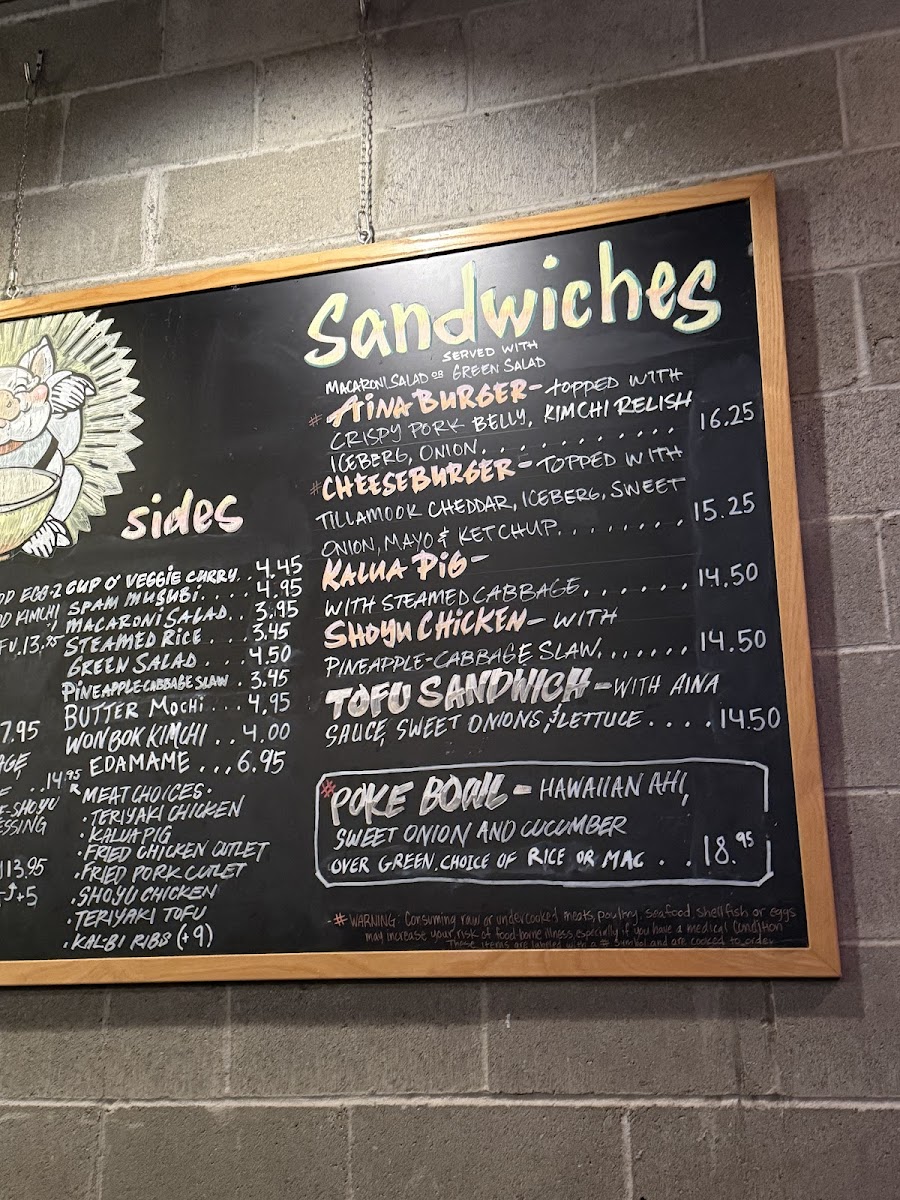 Sandwiches
SERVED WITH
MACARONI SALAD OR GREEN SALAD
# AINA BURGER - TOPPED WITH
CRISPY PORK BELLY, KIMCHI RELISH
ICEBERG, ONION............ 16.25
# CHEESEBURGER - TOPPED WITH
TILLAMOOK CHEDDAR, ICEBERG, SWEET
ONION, MAYO & KETCHUP........ 15.25
KALUA PIG -
WITH STEAMED CABBAGE....... 14.50
SHOYU CHICKEN - WITH
PINEAPPLE-CABBAGE SLAW....... 14.50
TOFU SANDWICH - WITH AINA
SAUCE, SWEET ONIONS, & LETTUCE.... 14.50
# POKE BOWL - HAWAIIAN AHI,
SWEET ONION AND CUCUMBER
OVER GREEN. CHOICE OF RICE OR MAC... 18.95
- # WARNING: Consuming raw or undercooked meats, poultry, seafood, shellfish or eggs
may increase your risk of food borne illness, especially if you have a medical condition
These items are labeled with a # symbol and are cooked to order
sides
CUP O' VEGGIE CURRY.. 4.45
SPAM MUSUBI..... 4.95
MACARONI SALAD.. 3.95
STEAMED RICE... 3.45
GREEN SALAD.... 4.50
PINEAPPLE-CABBAGE SLAW. 3.45
BUTTER MOCHI... 4.95
WON BOK KIMCHI.. 4.00
EDAMAME... 6.95
MEAT CHOICES:
• TERIYAKI CHICKEN
• KALUA PIG
• FRIED CHICKEN CUTLET
• FRIED PORK CUTLET
• SHOYU CHICKEN
• TERIYAKI TOFU
• KAL-BI RIBS (+9)
EGG-2
KIMCHI
13.75
7.95
..14.95
SHOYU
13.95
+5